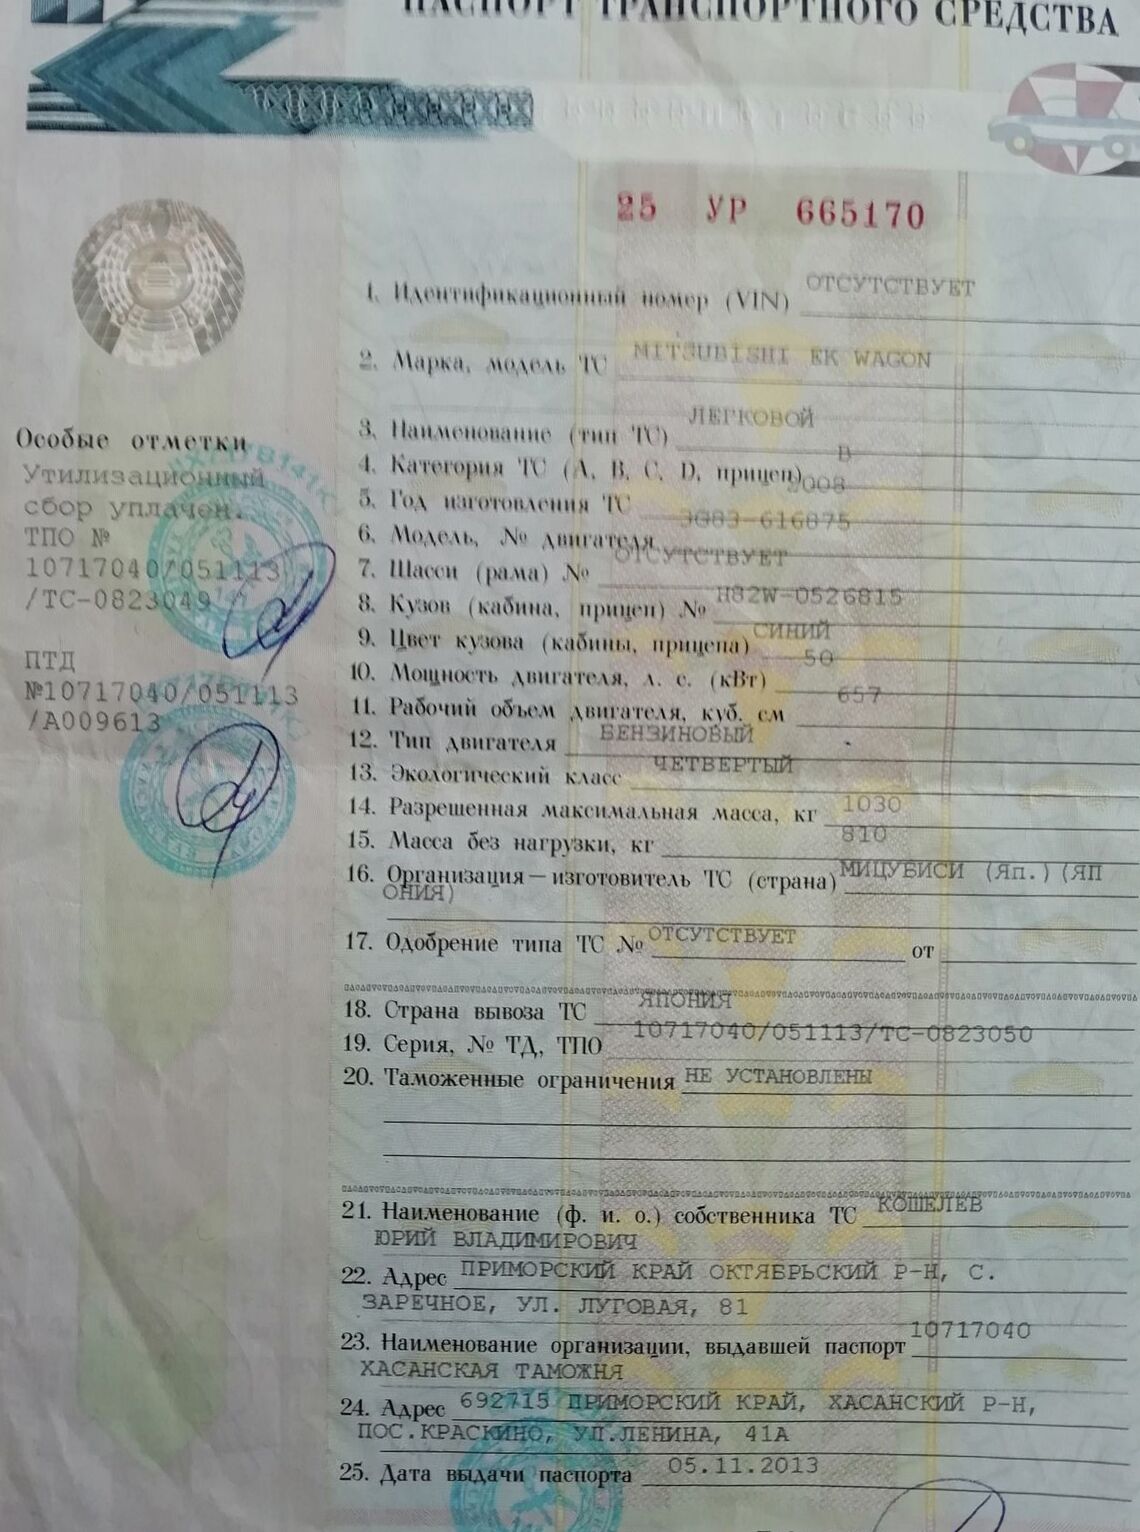 ПАСПОРТ ТРАНСПОРТНОГО СРЕДСТВА
25 УР 665170
1. Идентификационный номер (VIN) ОТСУТСТВУЕТ
2. Марка, модель ТС MITSUBISHI EK WAGON
3. Наименование (тип ТС) ЛЕГКОВОЙ
4. Категория ТС (A, B, C, D, прицеп) B
5. Год изготовления ТС 2008
6. Модель, № двигателя 3G83-616875
7. Шасси (рама) № ОТСУТСТВУЕТ
8. Кузов (кабина, прицеп) № H82W-0526815
9. Цвет кузова (кабины, прицепа) СИНИЙ
10. Мощность двигателя, л. с. (кВт) 50
11. Рабочий объем двигателя, куб. см 657
12. Тип двигателя БЕНЗИНОВЫЙ
13. Экологический класс ЧЕТВЕРТЫЙ
14. Разрешенная максимальная масса, кг 1030
15. Масса без нагрузки, кг 810
16. Организация—изготовитель ТС (страна) МИЦУБИСИ (Яп.)(ЯП
ОНИЯ)
17. Одобрение типа ТС № ОТСУТСТВУЕТ от
18. Страна вывоза ТС ЯПОНИЯ
19. Серия, № ТД, ТПО 10717040/051113/ТС-0823050
20. Таможенные ограничения НЕ УСТАНОВЛЕНЫ
21. Наименование (ф. и. о.) собственника ТС КОШЕЛЕВ
ЮРИЙ ВЛАДИМИРОВИЧ
22. Адрес ПРИМОРСКИЙ КРАЙ ОКТЯБРЬСКИЙ Р-Н, С.
ЗАРЕЧНОЕ, УЛ. ЛУГОВАЯ, 81
23. Наименование организации, выдавшей паспорт 10717040
ХАСАНСКАЯ ТАМОЖНЯ
24. Адрес 692715 ПРИМОРСКИЙ КРАЙ, ХАСАНСКИЙ Р-Н,
ПОС.КРАСКИНО, УЛ.ЛЕНИНА, 41А
25. Дата выдачи паспорта 05.11.2013
Особые отметки
Утилизационный
сбор уплачен.
ТПО №
10717040/051113
/ТС-0823049
ПТД
№10717040/051113
/А009613